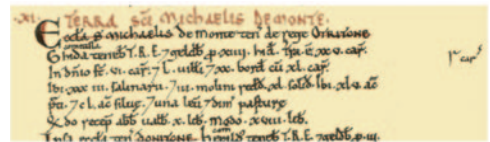 .XI. TERRA SCI MICHAELIS DE MONTE.
Eccla S Michaelis de monte ten de rege OTRITONE.
Ghida teneb T.R.E. 7 geldb p xiiii. hid. Tra. e xx v. car.
In dnio st. vi. car. 7 L. uilli 7 xx. bord cu xl. car.
Ibi xxx iii. salinaru. 7 iii. molini redd xl. solid. Ibi. xl v. ac
pti. 7 c L. ac siluę. 7 una leu 7 dim pasturę
Qdo recep abb ualb. x. lib. Modo. xviii. lib.
Ipsa eccla ten DONITONE. teneb T.R.E. 7 geldb p iii.